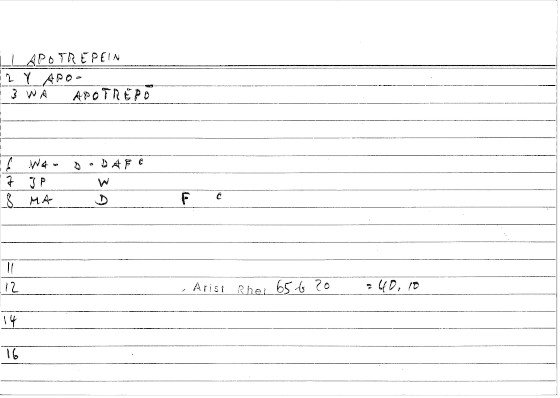 1 APOTREPEIN
2 Y APO-
3 WA APOTREPŌ
6 WA- D-DAFC
7 JP W
8 MA D F C
11
12 . Arist Rhet 65.6 20 = 40,10
14
16